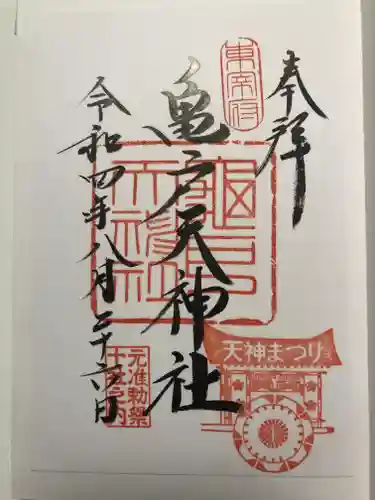 奉拝
東宰府
亀戸天神社
龜戸
天神社
令和四年八月二十六日
天神まつり
元准勅祭
十社之内